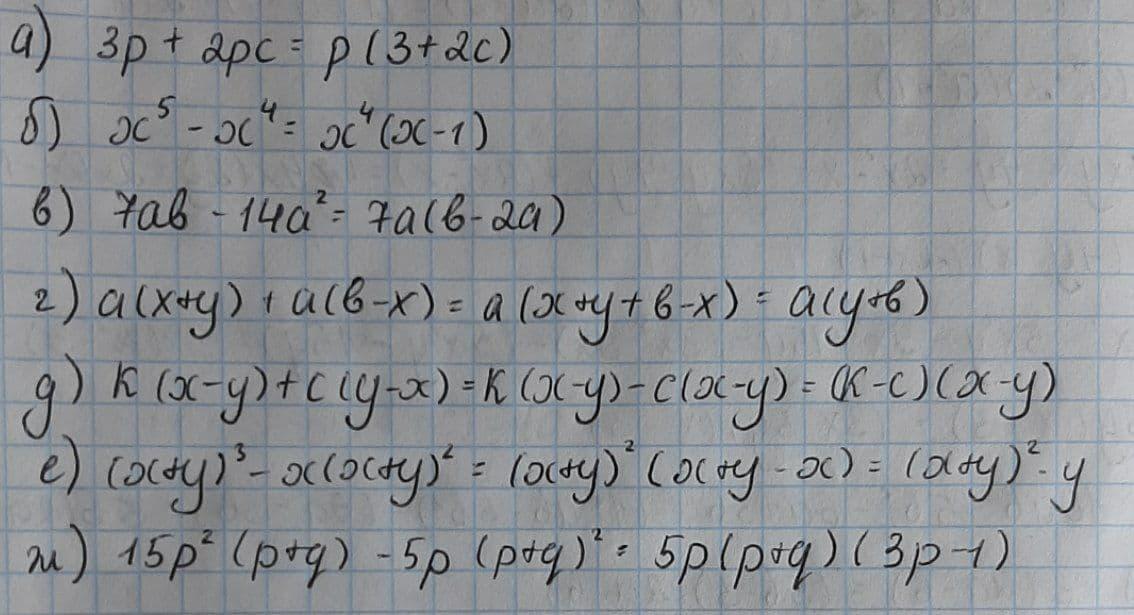 а) 3p + 2pc = p(3+2c)
б) x⁵ - x⁴ = x⁴(x-1)
в) 7ab - 14a² = 7a(b-2a)
г) a(x+y) + a(b-x) = a(x+y+b-x) = a(y+b)
д) k(x-y)+c(y-x)=k(x-y)-c(x-y) = (k-c)(x-y)
е) (x+y)³ - x(x+y)² = (x+y)²(x+y-x) = (x+y)²·y
ж) 15p²(p+q) - 5p(p+q)² = 5p(p+q)(3p-1)